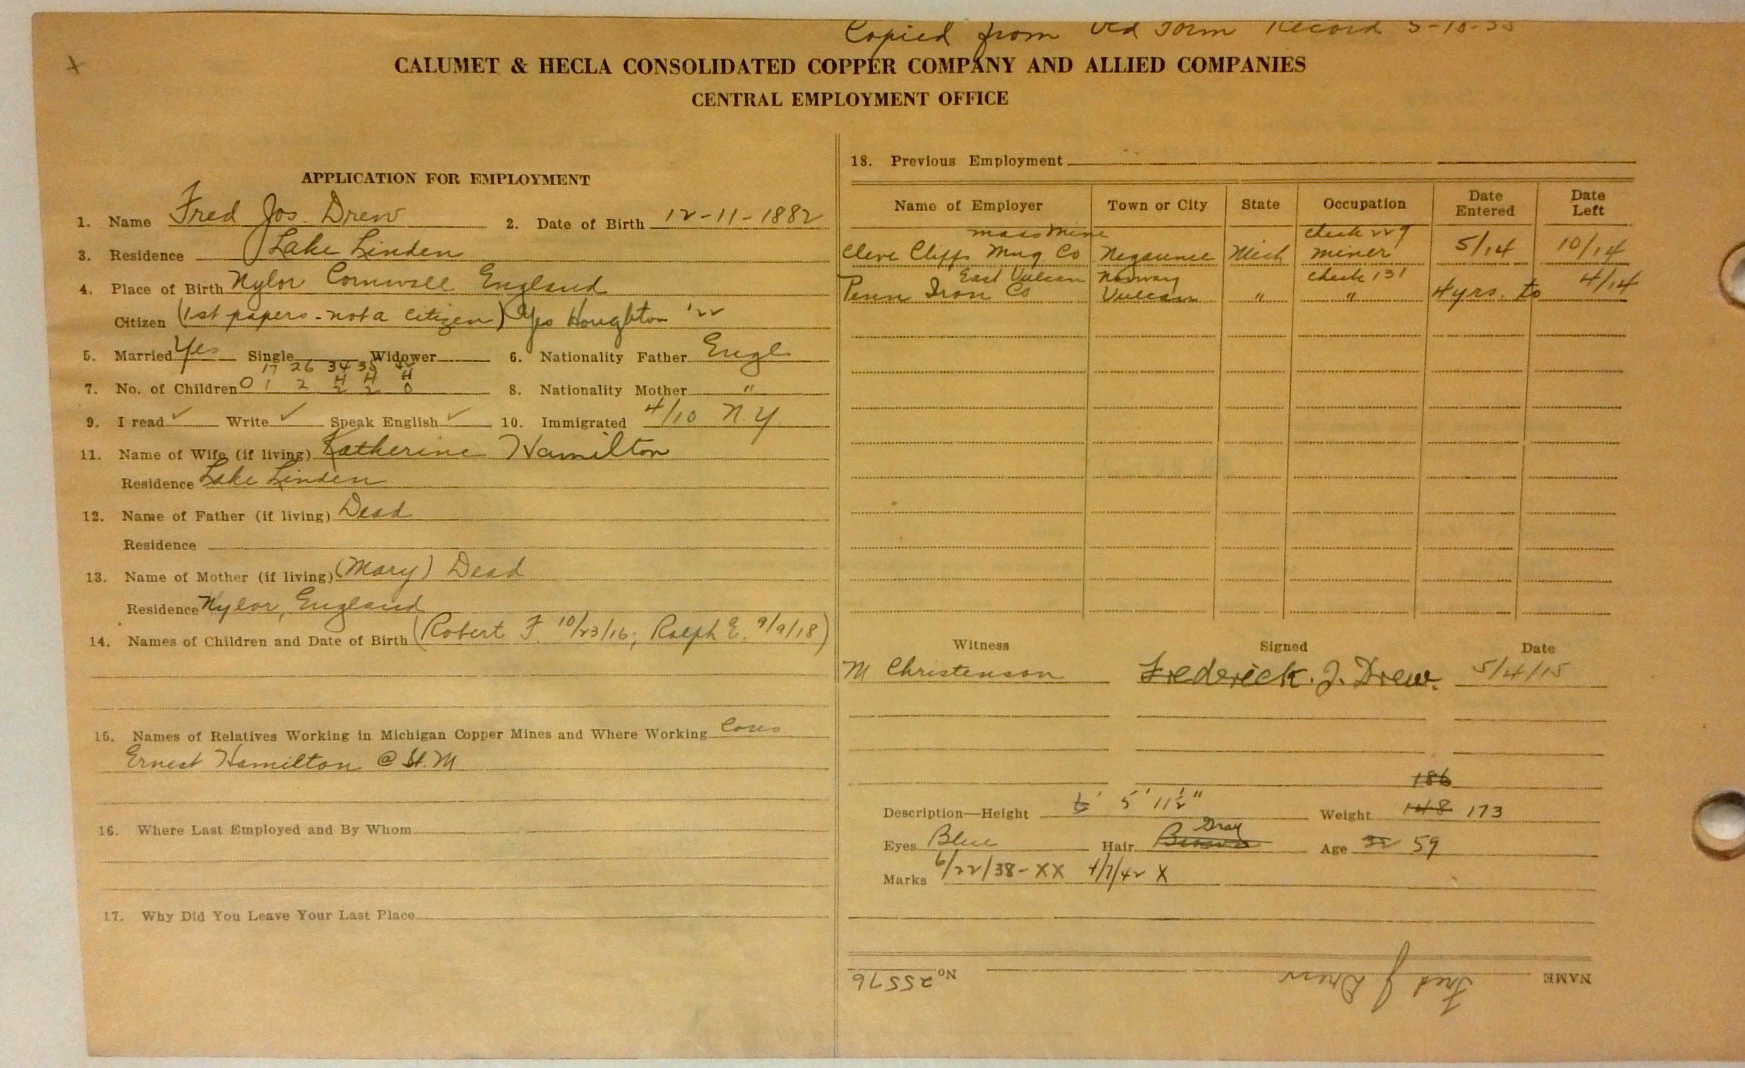 Copied from Old Form Record 5-18-33
CALUMET & HECLA CONSOLIDATED COPPER COMPANY AND ALLIED COMPANIES
CENTRAL EMPLOYMENT OFFICE
x
APPLICATION FOR EMPLOYMENT
1. Name Fred Jos. Drew 2. Date of Birth 12-11-1882
3. Residence Lake Linden
4. Place of Birth Nylor Cornwall England
Citizen (1st papers - not a citizen) Yes Houghton '22
5. Married Yes Single Widower 6. Nationality Father Engl
17 26 34 38 42
H H H
7. No. of Children 0 1 2 2 2 0 8. Nationality Mother "
9. I read ✓ Write ✓ Speak English ✓ 10. Immigrated 4/10 N.Y.
11. Name of Wife (if living) Katherine Hamilton
Residence Lake Linden
12. Name of Father (if living) Dead
Residence
13. Name of Mother (if living) (Mary) Dead
Residence Nylor, England
14. Names of Children and Date of Birth (Robert F. 10/23/16; Ralph E. 9/9/18)
15. Names of Relatives Working in Michigan Copper Mines and Where Working Cous
Ernest Hamilton @ St. M
16. Where Last Employed and By Whom
17. Why Did You Leave Your Last Place
18. Previous Employment
Name of Employer Town or City State Occupation Date Entered Date Left
Mass Mine check 229
Cleve Cliffs Mng Co Negaunee Mich miner 5/14 10/14
East Vulcan Norway check 131
Penn Iron Co Vulcan " " 4 yrs. to 4/14
Witness Signed Date
M Christenson Frederick. J. Drew. 5/4/15
186
Description—Height 6' 5' 11½" Weight 148 173
Gray
Eyes Blue Hair Brown Age 32 59
Marks 6/22/38-XX 4/7/42 X
NAME Fred J Drew No. 25576